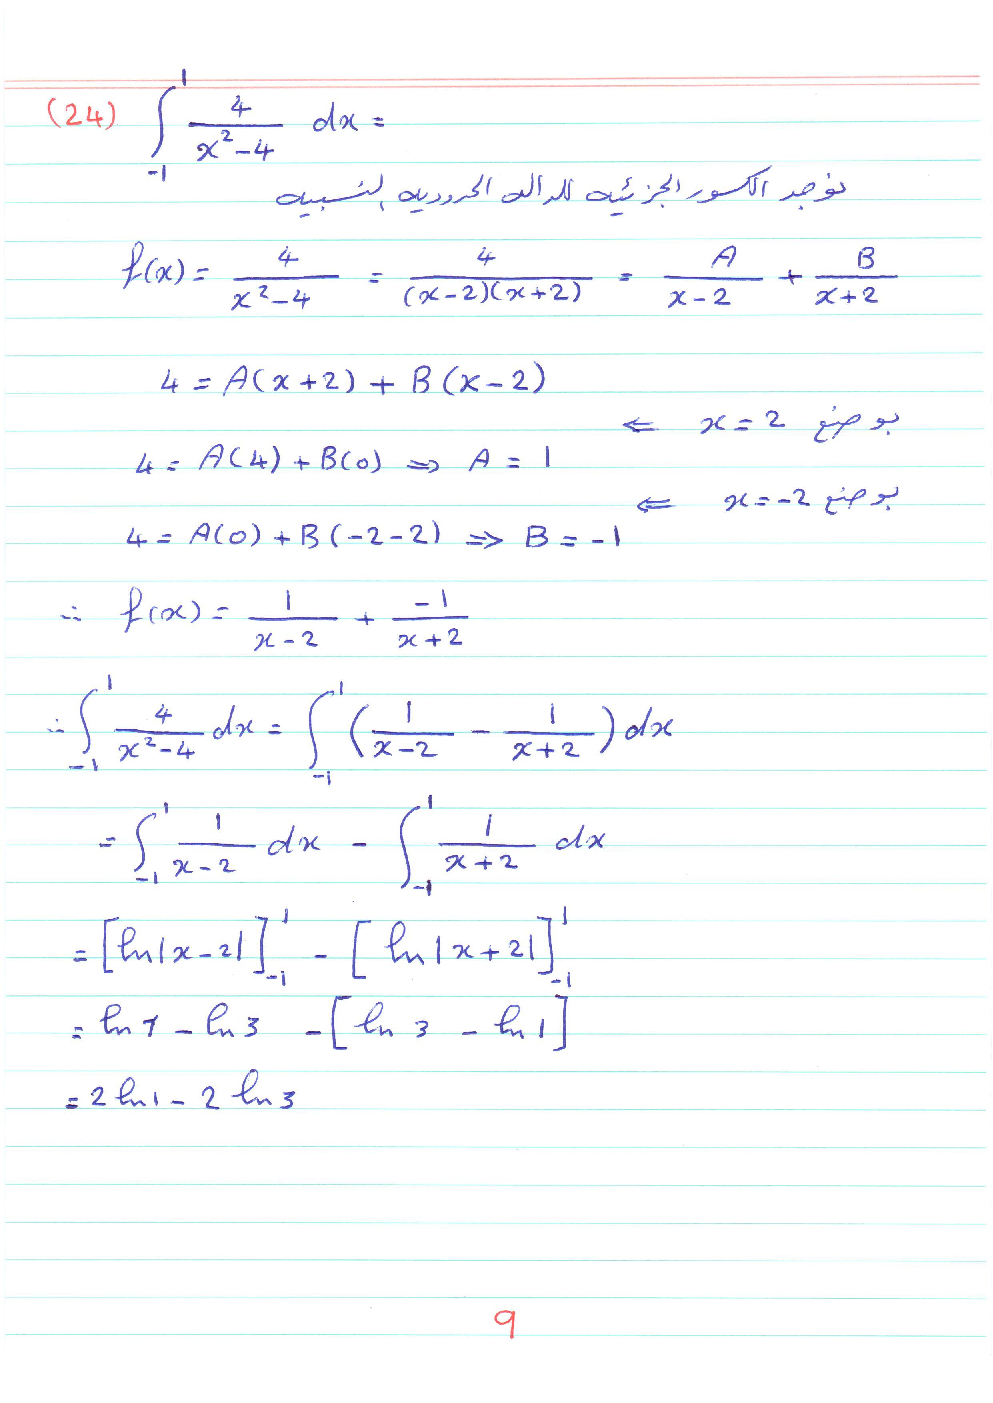 (24) ∫_{-1}^{1} 4/(x²-4) dx =
نوجد الكسور الجزئيه للداله الحدوديه النسبيه
f(x) = 4/(x²-4) = 4/((x-2)(x+2)) = A/(x-2) + B/(x+2)
4 = A(x+2) + B(x-2)
بوضع x = 2 ⇐
4 = A(4) + B(0) ⇒ A = 1
بوضع x = -2 ⇐
4 = A(0) + B(-2-2) ⇒ B = -1
∴ f(x) = 1/(x-2) + -1/(x+2)
∴ ∫_{-1}^{1} 4/(x²-4) dx = ∫_{-1}^{1} (1/(x-2) - 1/(x+2)) dx
= ∫_{-1}^{1} 1/(x-2) dx - ∫_{-1}^{1} 1/(x+2) dx
= [ln|x-2|]_{-1}^{1} - [ln|x+2|]_{-1}^{1}
= ln 1 - ln 3 - [ln 3 - ln 1]
= 2 ln 1 - 2 ln 3
9